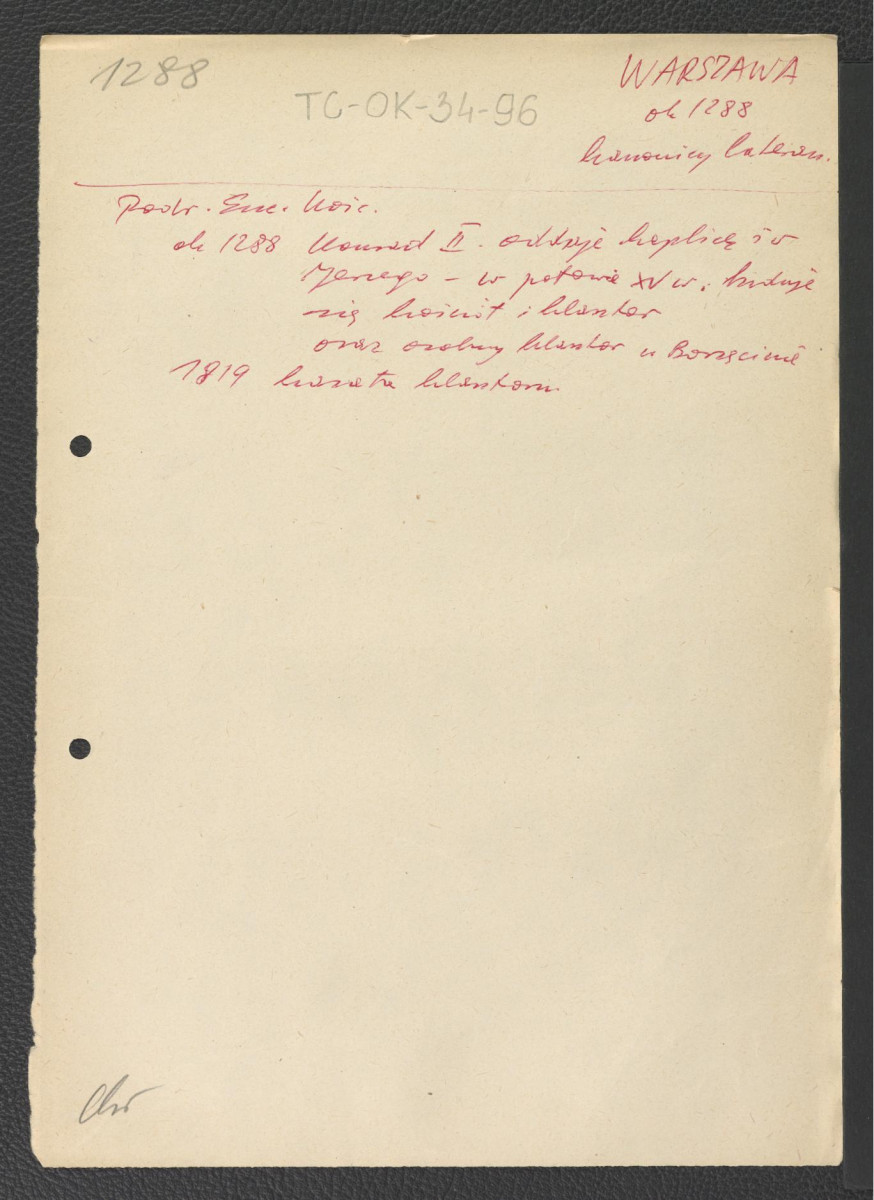 1288
TC-OK-34-96
WARSZAWA
ok 1288
kanonicy lateran.
Podr. Enc. Kośc.
ok 1288 Konrad II. oddaje kaplicę św
Jerzego - w połowie XV w. buduje
się kościół i klasztor
oraz osobny klasztor w Borzęcinie
1819 kasata klasztoru.